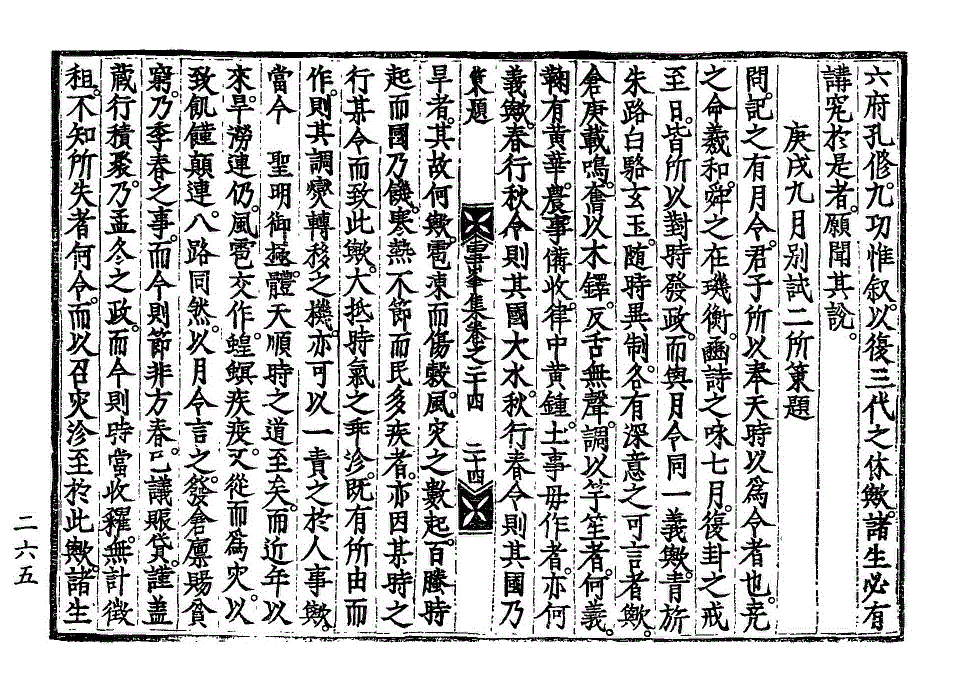 六府孔修。九功惟叙。以復三代之休歟。諸生必有
講究於是者。願聞其說。
庚戌九月別試二所策題
問。記之有月令。君子所以奉天時以爲令者也。堯
之命羲和。舜之在璣衡。豳詩之咏七月。復卦之戒
至日。皆所以對時發政。而與月令同一義歟。靑旂
朱路白駱玄玉。随時異制。各有深意之可言者歟。
倉庚載鳴。奮以木鐸。反舌無聲。調以竽笙者。何義。
鞠有黃華。農事備收。律中黃鍾。土事毋作者。亦何
義歟。春行秋令則其國大水。秋行春令則其國乃
策題
卷之二十四
二十四
旱者。其故何歟。雹凍而傷穀。風灾之數起。百螣時
起而國乃饑。寒熱不節而民多疾者。亦因某時之
行某令而致此歟。大抵時氣之乖沴。旣有所由而
作。則其調燮轉移之機。亦可以一責之於人事歟。
當今 聖明御極。體天順時之道至矣。而近年以
來。旱澇連仍。風雹交作。蝗螟疾疫。又從而爲灾。以
致飢饉顚連。八路同然。以月令言之。發倉廩賜貧
窮。乃季春之事。而今則節非方春。已議賑貸。謹盖
藏行積聚。乃孟冬之政。而今則時當收糴。無計徵
租。不知所失者何令。而以召灾沴至於此歟。諸生
二六五